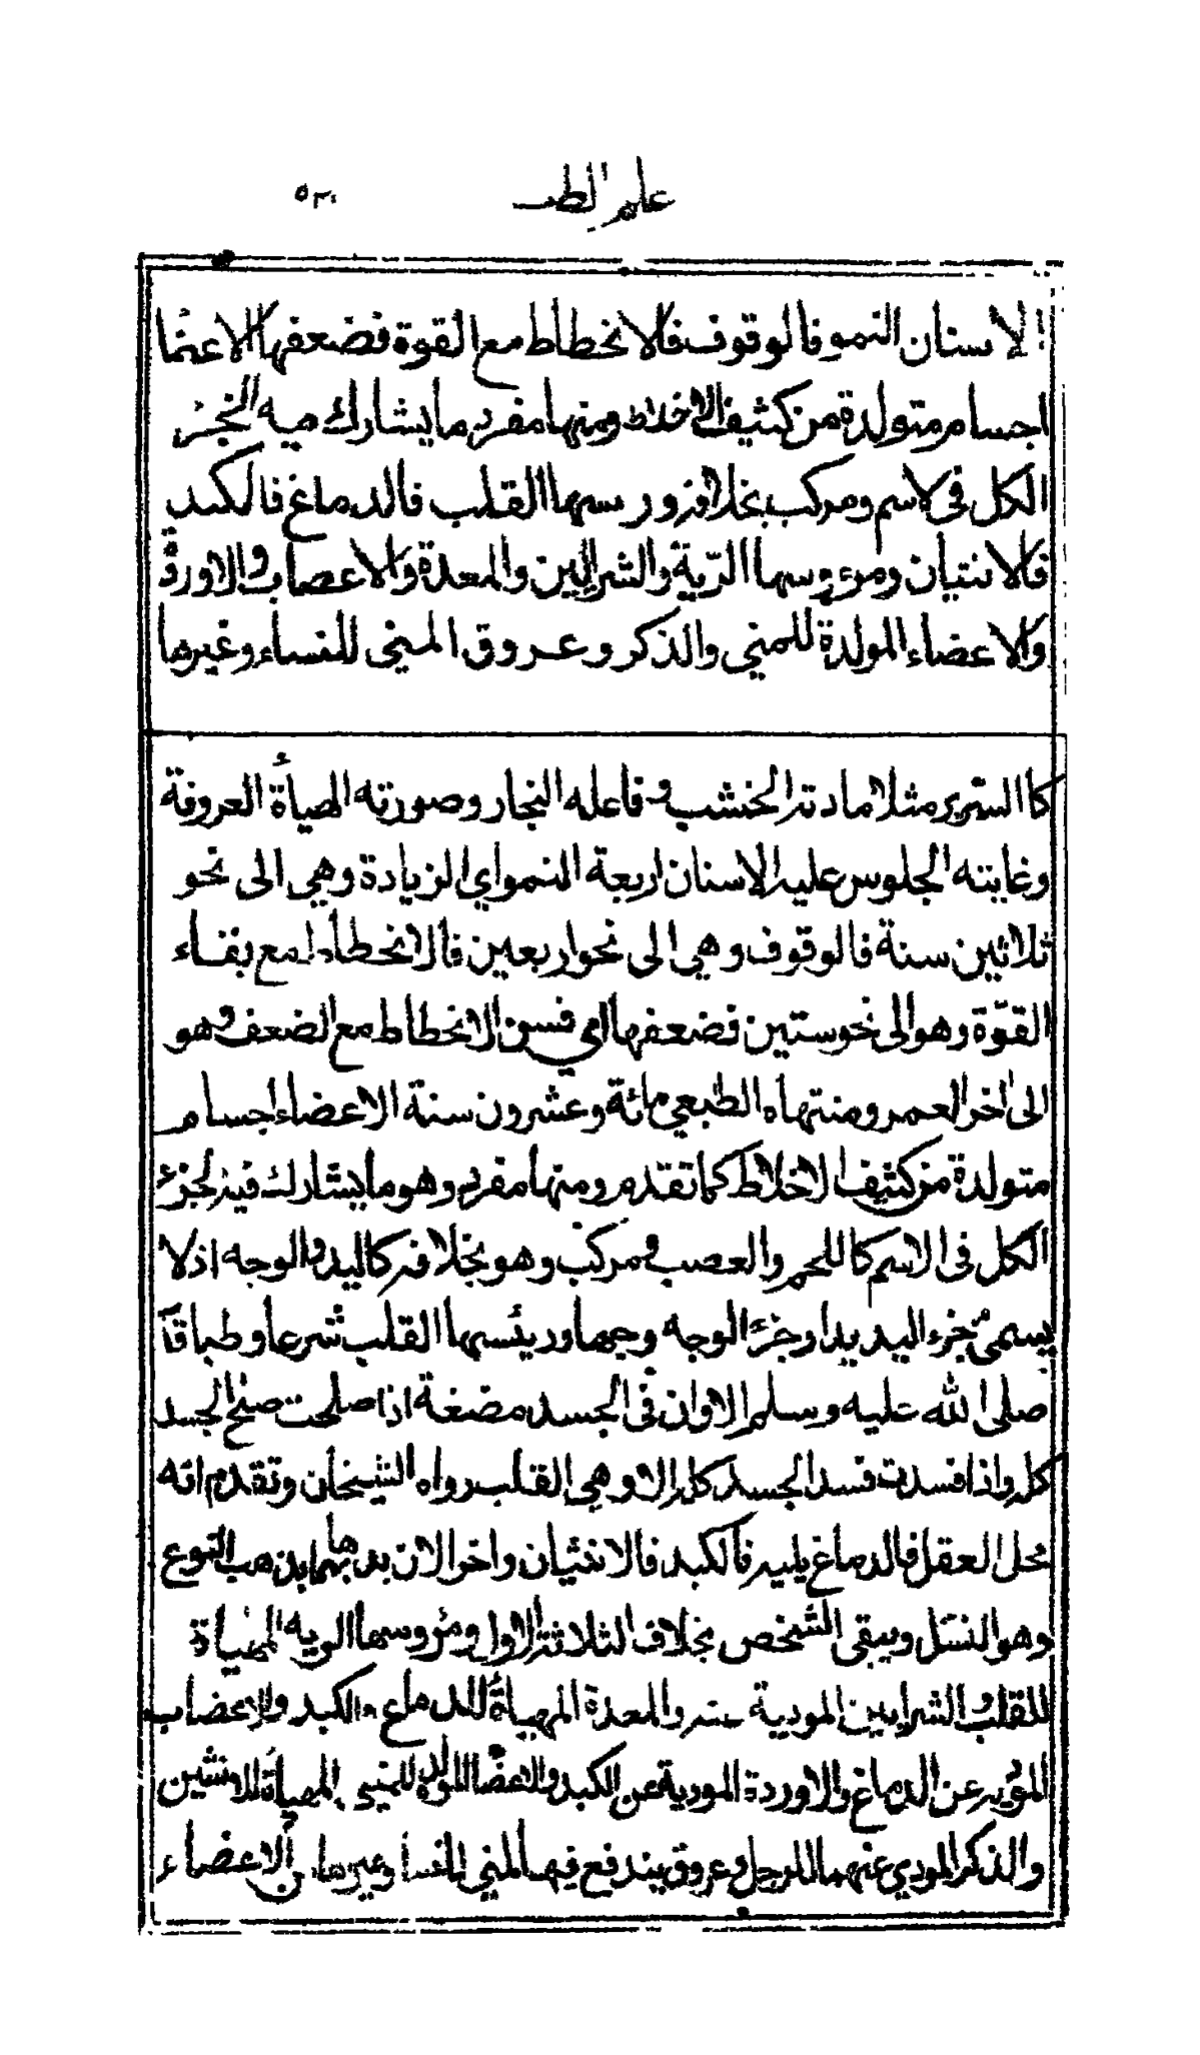 علم الطب ٥٣٠
الاسنان النمو فالوقوف فالانحطاط مع القوة فضعفها الاعضا
اجسام متولدة من كثيف الاخلاط ومنها مفرد ما يشارك فيه الجزء
الكل فى لاسم ومركب بخلافه ورسها القلب فالدماغ فالكبد
فالانثيان ومرءوسها الرّية والشرايين والمعدة والاعصاب والاوردة
والاعضاء المولدة للمني والذكر وعروق المني للنساء وغيرها
كا السّرير مثلا مادته الخشب وفاعله النجار وصورته الهيأة العروفة
وغايته الجلوس عليه الاسنان اربعة النمو اي الزيادة وهي الى نحو
ثلاثين سنة فالوقوف وهي الى نحو اربعين فالانحطاط مع بقاء
القوّة وهو الى نحو ستين فضعفها اي فسن الانحطاط مع الضعف وهو
الى اخر العمر ومنتهاه الطبعي مائة وعشرون سنة الاعضاء اجسام
متولدة من كثيف الاخلاط كما تقدم ومنها مفرد وهو ما يشارك فيه الجزء
الكل فى الاسم كا للحم والعصب ومركب وهو بخلافه كاليد والوجه اذ لا
يسمى جزء اليد يدا وجزء الوجه وجها ورئيسها القلب شرعا وطبا قال
صلى الله عليه وسلم الا وان فى الجسد مضغة اذا صلحت صلح الجسد
كله واذا فسدت فسد الجسد كله الا وهي القلب رواه الشيخان وتقدم انه
محل العقل فالدماغ يليه فالكبد فالانثيان واخرا لان بذهابهما يذهب النوع
وهو النسل ويبقى الشخص بخلاف الثلاثة الاول ومرؤوسها الريه المهيأة
للقلب والشرايين المودية عنه والمعدة المهيأة للدماغ والكبد والاعصاب
المؤديه عن الدماغ والاوردة المودية عن الكبد والاعضا المولدة للمني المهيأة للانثيين
والذكر المودي عنهما للرجل وعروق يندفع فيها المني للنسا وغيرها من الاعضاء